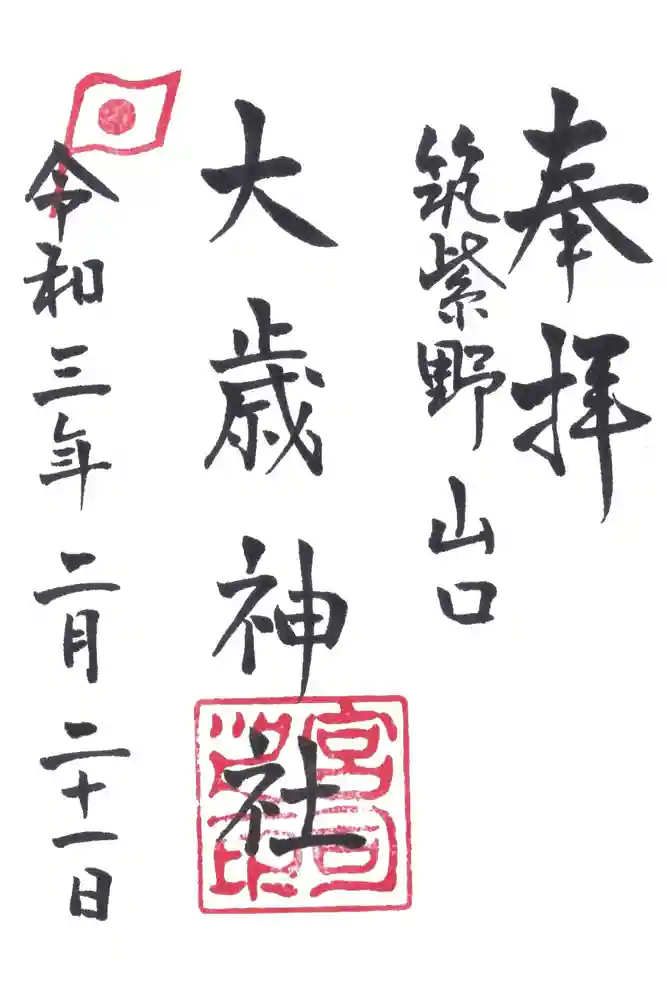 奉拝
筑紫野 山口
大歳神社
令和三年 二月 二十一日
宮司
之印